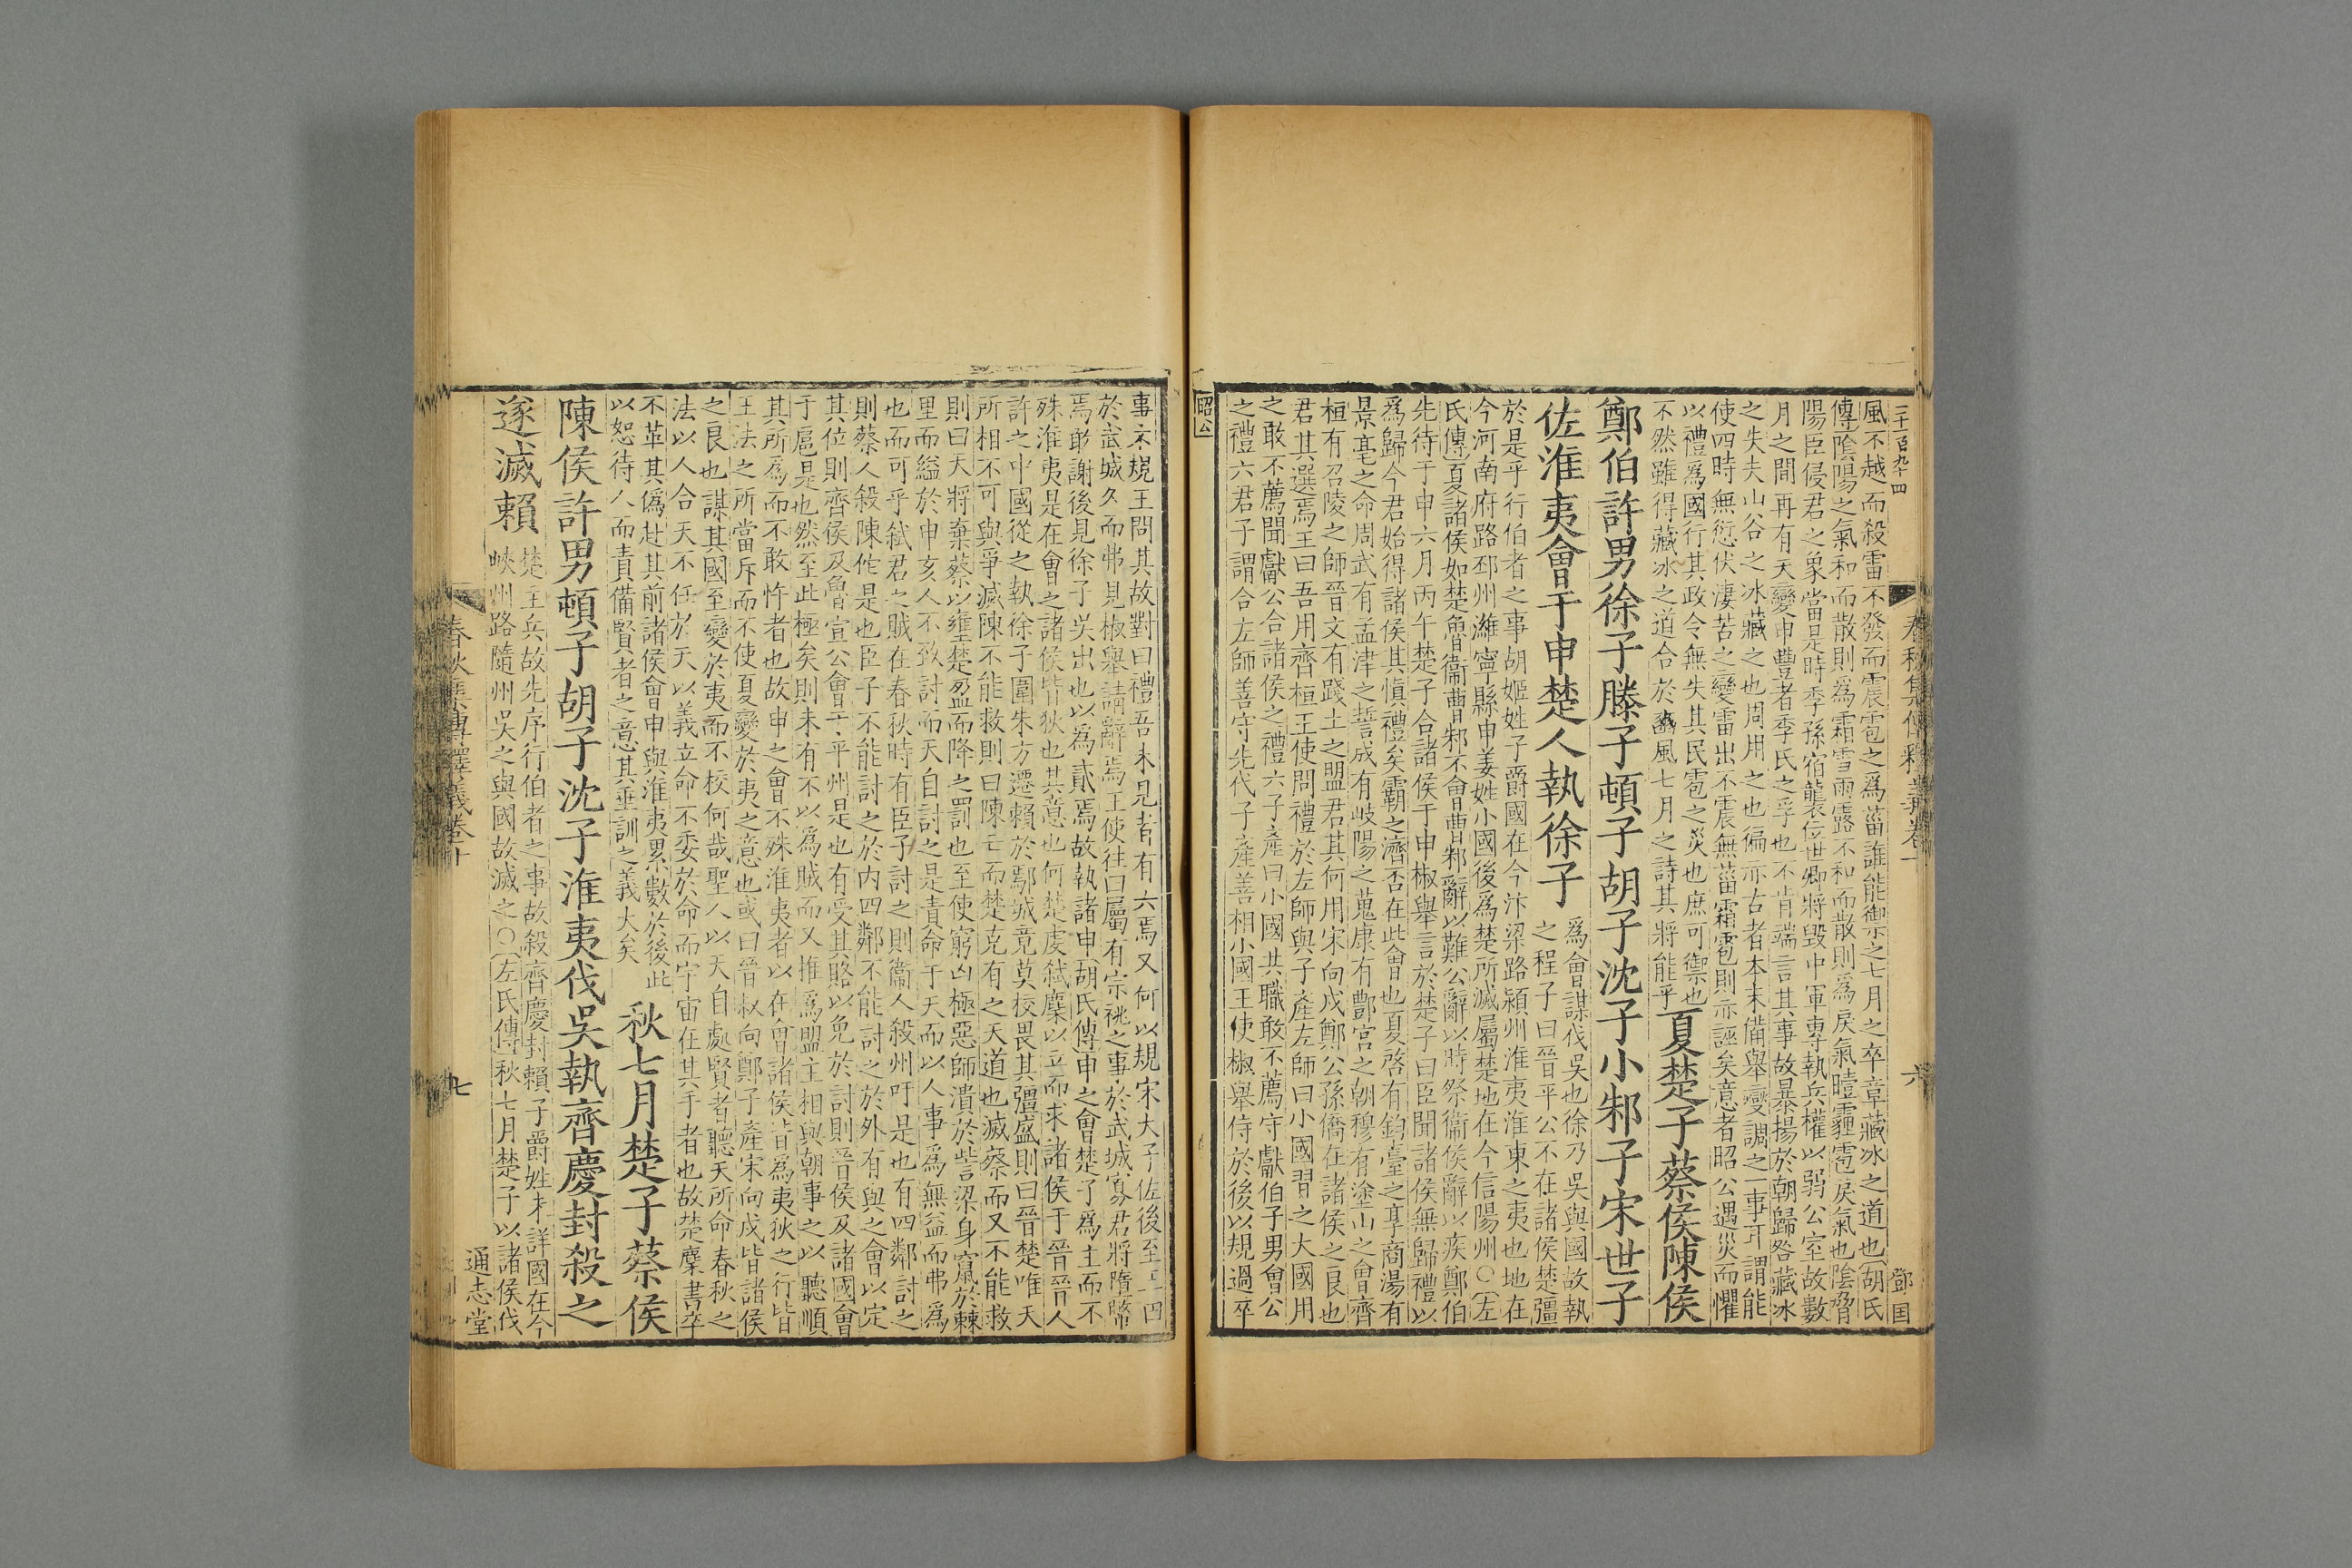 風不越而殺雷不發而震雹之為菑誰能禦之七月之卒章藏冰之道也胡氏
傳陰陽之氣和而散則為霜雪雨露不和而散則為戾氣曀霾雹戾氣也陰脅
陽臣侵君之象當是時季孫宿襲位世卿將毀中軍專執兵權以弱公室故數
月之間再有天變申豐者季氏之孚也不肯端言其事故暴揚於朝歸咎藏冰
之失夫山谷之冰藏之也周用之也徧亦古者本末備舉變調之一事耳謂能
使四時無愆伏凄苦之變雷出不震無菑霜雹則亦誣矣意者昭公遇災而懼
以禮為國行其政令無失其民雹之災也庶可禦也
不然雖得藏冰之道合於豳風七月之詩其將能乎
夏楚子蔡侯陳侯
鄭伯許男徐子滕子頓子胡子沈子小邾子宋世子
佐淮夷會于申楚人執徐子
為會謀伐吳也徐乃吳與國故執
之程子曰晉平公不在諸侯楚彊
於是乎行伯者之事胡姬姓子爵國在今汴梁路潁州淮夷淮東之夷也地在
今河南府路邳州濉寧縣申姜姓小國後為楚所滅屬楚地在今信陽州○左
氏傳夏諸侯如楚魯衞曹邾不會曹邾辭以難公辭以時祭衞侯辭以疾鄭伯
先待于申六月丙午楚子合諸侯于申椒舉言於楚子曰臣聞諸侯無歸禮以
為歸今君始得諸侯其愼禮矣霸之濟否在此會也夏啓有鈞臺之享商湯有
景亳之命周武有孟津之誓成有岐陽之蒐康有酆宮之朝穆有塗山之會齊
桓有召陵之師晉文有踐土之盟君其何用宋向戌鄭公孫僑在諸侯之良也
君其選焉王曰吾用齊桓王使問禮於左師與子產左師曰小國習之大國用
之敢不薦聞獻公合諸侯之禮六子產曰小國共職敢不薦守獻伯子男會公
之禮六君子謂合左師善守先代子產善相小國王使椒舉侍於後以規過卒
昭公
事不規王問其故對曰禮吾未見者有六焉又何以規宋大子佐後至王田
於武城久而弗見椒舉請辭焉王使往曰屬有宗祧之事於武城寡君將墮幣
焉敢謝後見徐子吳出也以為貳焉故執諸申胡氏傳申之會楚子為主而不
殊淮夷是在會之諸侯皆狄也其意也何楚虔弑麇以立而求諸侯于晉晉人
許之中國從之執徐子圍朱方遷賴於鄢城竟莫校畏其彊盛則曰晉楚唯天
所相不可與爭滅陳不能救則曰陳亡而楚克有之天道也滅蔡而又不能救
則曰天將棄蔡以壅楚盈而降之罰也至使窮凶極惡師潰於訾梁身竄於棘
里而縊於申亥人不致討而天自討之是責命于天而以人事為無益而弗為
也而可乎弑君之賊在春秋時有臣子討之則衞人殺州吁是也有四鄰討之
則蔡人殺陳佗是也臣子不能討之於内四鄰不能討之於外有與之會以定
其位則齊侯及魯宣公會于平州是也有受其賂以免於討則晉侯及諸國會
于扈是也然至此極矣則未有不以為賊而又推為盟主相與朝事之以聽順
其所為而不敢忤者也故申之會不殊淮夷者以在會諸侯皆為夷狄之行皆
王法之所當斥而不使夏變於夷之意也或曰晉叔向鄭子產宋向戌皆諸侯
之良也謀其國至變於夷而不校何哉聖人以天自處賢者聽天所命春秋之
法以人合天不任於天以義立命不委於命而宇宙在其手者也故楚麇書卒
不革其偽赴其前諸侯會申與淮夷累數於後此
以恕待人而責備賢者之意其垂訓之義大矣
秋七月楚子蔡侯
陳侯許男頓子胡子沈子淮夷伐吳執齊慶封殺之
遂滅賴
楚主兵故先序行伯者之事故殺齊慶封賴子爵姓未詳國在今
峽州路隨州吳之與國故滅之○左氏傳秋七月楚子以諸侯伐
七
通志堂